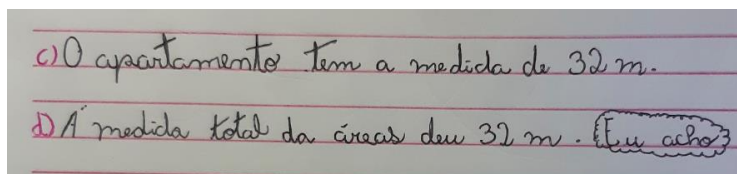 c) O apartamento tem a medida de 32 m.
d) A medida total da áreas deu 32 m. (Eu acho)